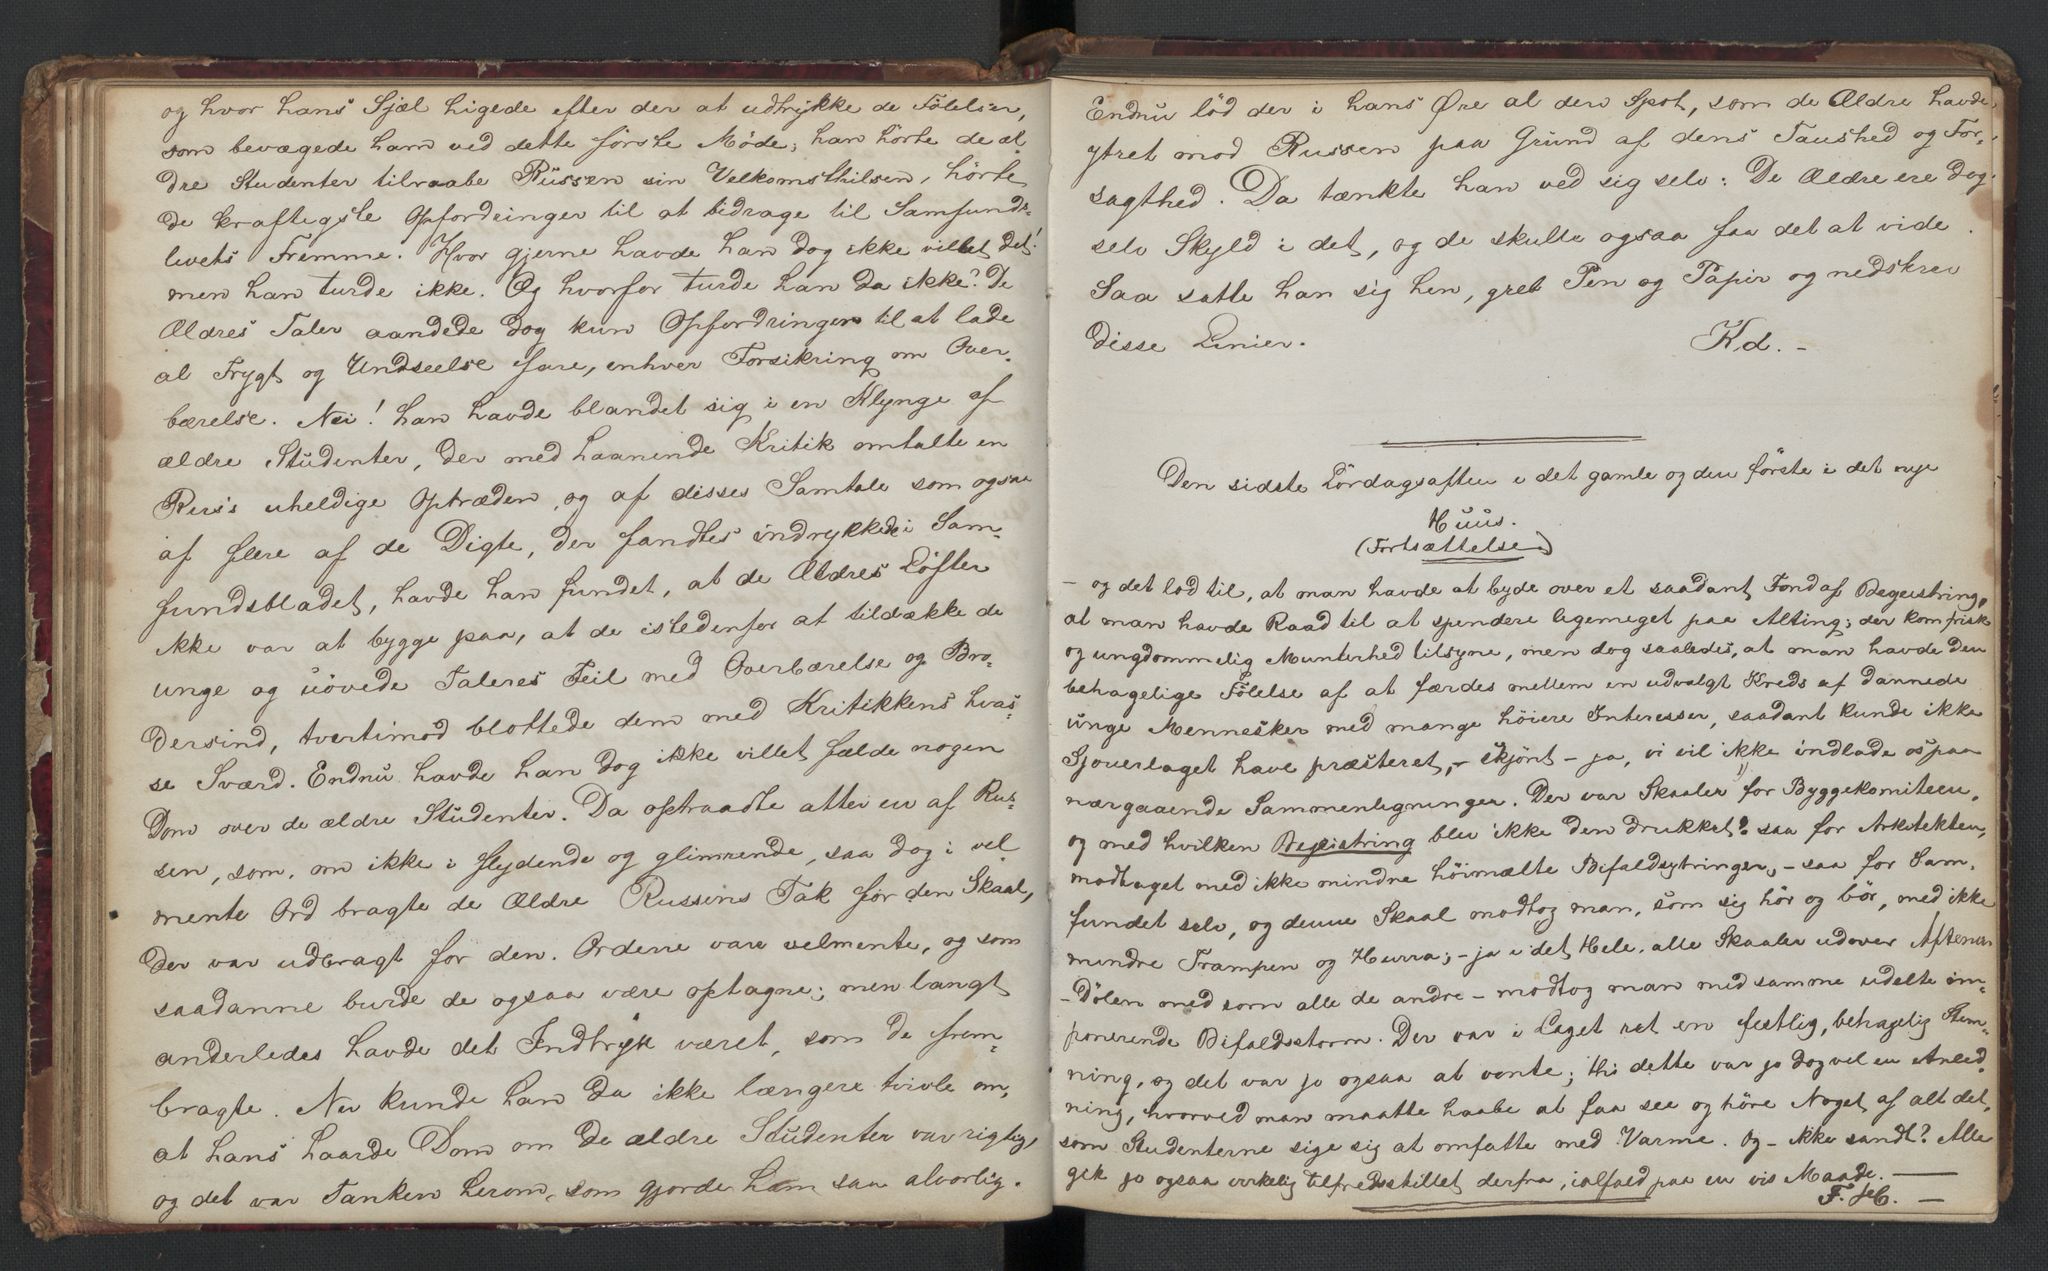 og hvor hans Sjæl higede efter der at udtrykke de Følelser,
som bevægede ham ved dette første Møde; han hørte de æl-
dre Studenter tilraabe Russen sin Velkomsthilsen, hørte
de kraftigste Opfordringer til at bidrage til Samfunds-
livets Fremme. Hvor gjerne havde han dog ikke villet det!
men han turde ikke. Og hvorfor turde han da ikke? De
Ældres Taler aandede dog kun Opfordringer til at lade
al Frygt og Undseelse fare, enhver Forsikring om Over-
bærelse. Nei! han havde blandet sig i en Klynge af
ældre Studenter, der med haanende Kritik omtalte en
Rus's uheldige Optræden, og af disses Samtale som ogsaa
af flere af de Digte, der fandtes indrykkede i Sam-
fundsbladet, havde han fundet, at de Ældres Løfter
ikke var at bygge paa, at de istedenfor at tildække de
unge og uøvede Taleres Feil med Overbærelse og Bro-
dersind, tvertimod blottede dem med Kritikkens hvas-
se Sværd. Endnu havde han dog ikke villet fælde nogen
Dom over de ældre Studenter. Da optraadte atter en af Rus-
sen, som, om ikke i flydende og glimrende, saa dog i vel
mente Ord bragte de Ældre Russens Tak for den Skaal,
der var udbragt for den. Ordene vare velmente, og som
saadanne burde de ogsaa være optagne; men langt
anderledes havde det Indtryk været, som de frem-
bragte. Nu kunde han da ikke længere tvivle om,
at hans haarde Dom om de ældre Studenter var rigtig,
og det var Tanken herom, som gjorde ham saa alvorlig.
Endnu lød der i hans Øre al den Spot, som de Ældre havde
ytret mod Russen paa Grund af dens Taushed og For-
sagthed. Da tænkte han ved sig selv: De Ældre ere dog
selv Skyld i det, og de skulle ogsaa faa det at vide.
Saa satte han sig hen, greb Pen og Papir og nedskrev
disse Linier. Kd. -
Den sidste Lørdagsaften i det gamle og den første i det nye
Huus.
(Fortsættelse)
- og det lod til, at man havde at byde over et saadant Fond af Begeistring,
at man havde Raad til at spendere ligemeget paa Alting; der kom frisk
og ungdommelig Munterhed tilsyne, men dog saaledes, at man havde den
behagelige Følelse af at færdes mellem en udvalgt Kreds af dannede
unge Mennesker med mange høiere Interesser, saadant kunde ikke
Sjouerlaget have præsteret, - skjønt - ja, vi vil ikke indlade os paa
nærgaaende Sammenligninger. Der var Skaaler for Byggekomiteen,
og med hvilken Begeistring blev ikke den drukket? saa for Arkitekten,
modtaget med ikke mindre høimælte Bifaldsytringer, - saa for Sam-
fundet selv, og denne Skaal modtog man, som sig hør og bør, med ikke
mindre Trampen og Hurra; - ja i det Hele, alle Skaaler udover Aftenen
- Dølen med som alle de andre - modtog man med samme udelte im-
ponerende Bifaldsstorm. Der var i Laget ret en festlig, behagelig Stem-
ning, og det var jo ogsaa at vente; thi dette var jo dog vel en Anled-
ning, hvorved man maatte haabe at faa see og høre Noget af alt det,
som Studenterne sige sig at omfatte med Varme. Og - ikke sandt? Alle
gik jo ogsaa virkelig tilfredsstillet derfra, ialfald paa en vis Maade. -